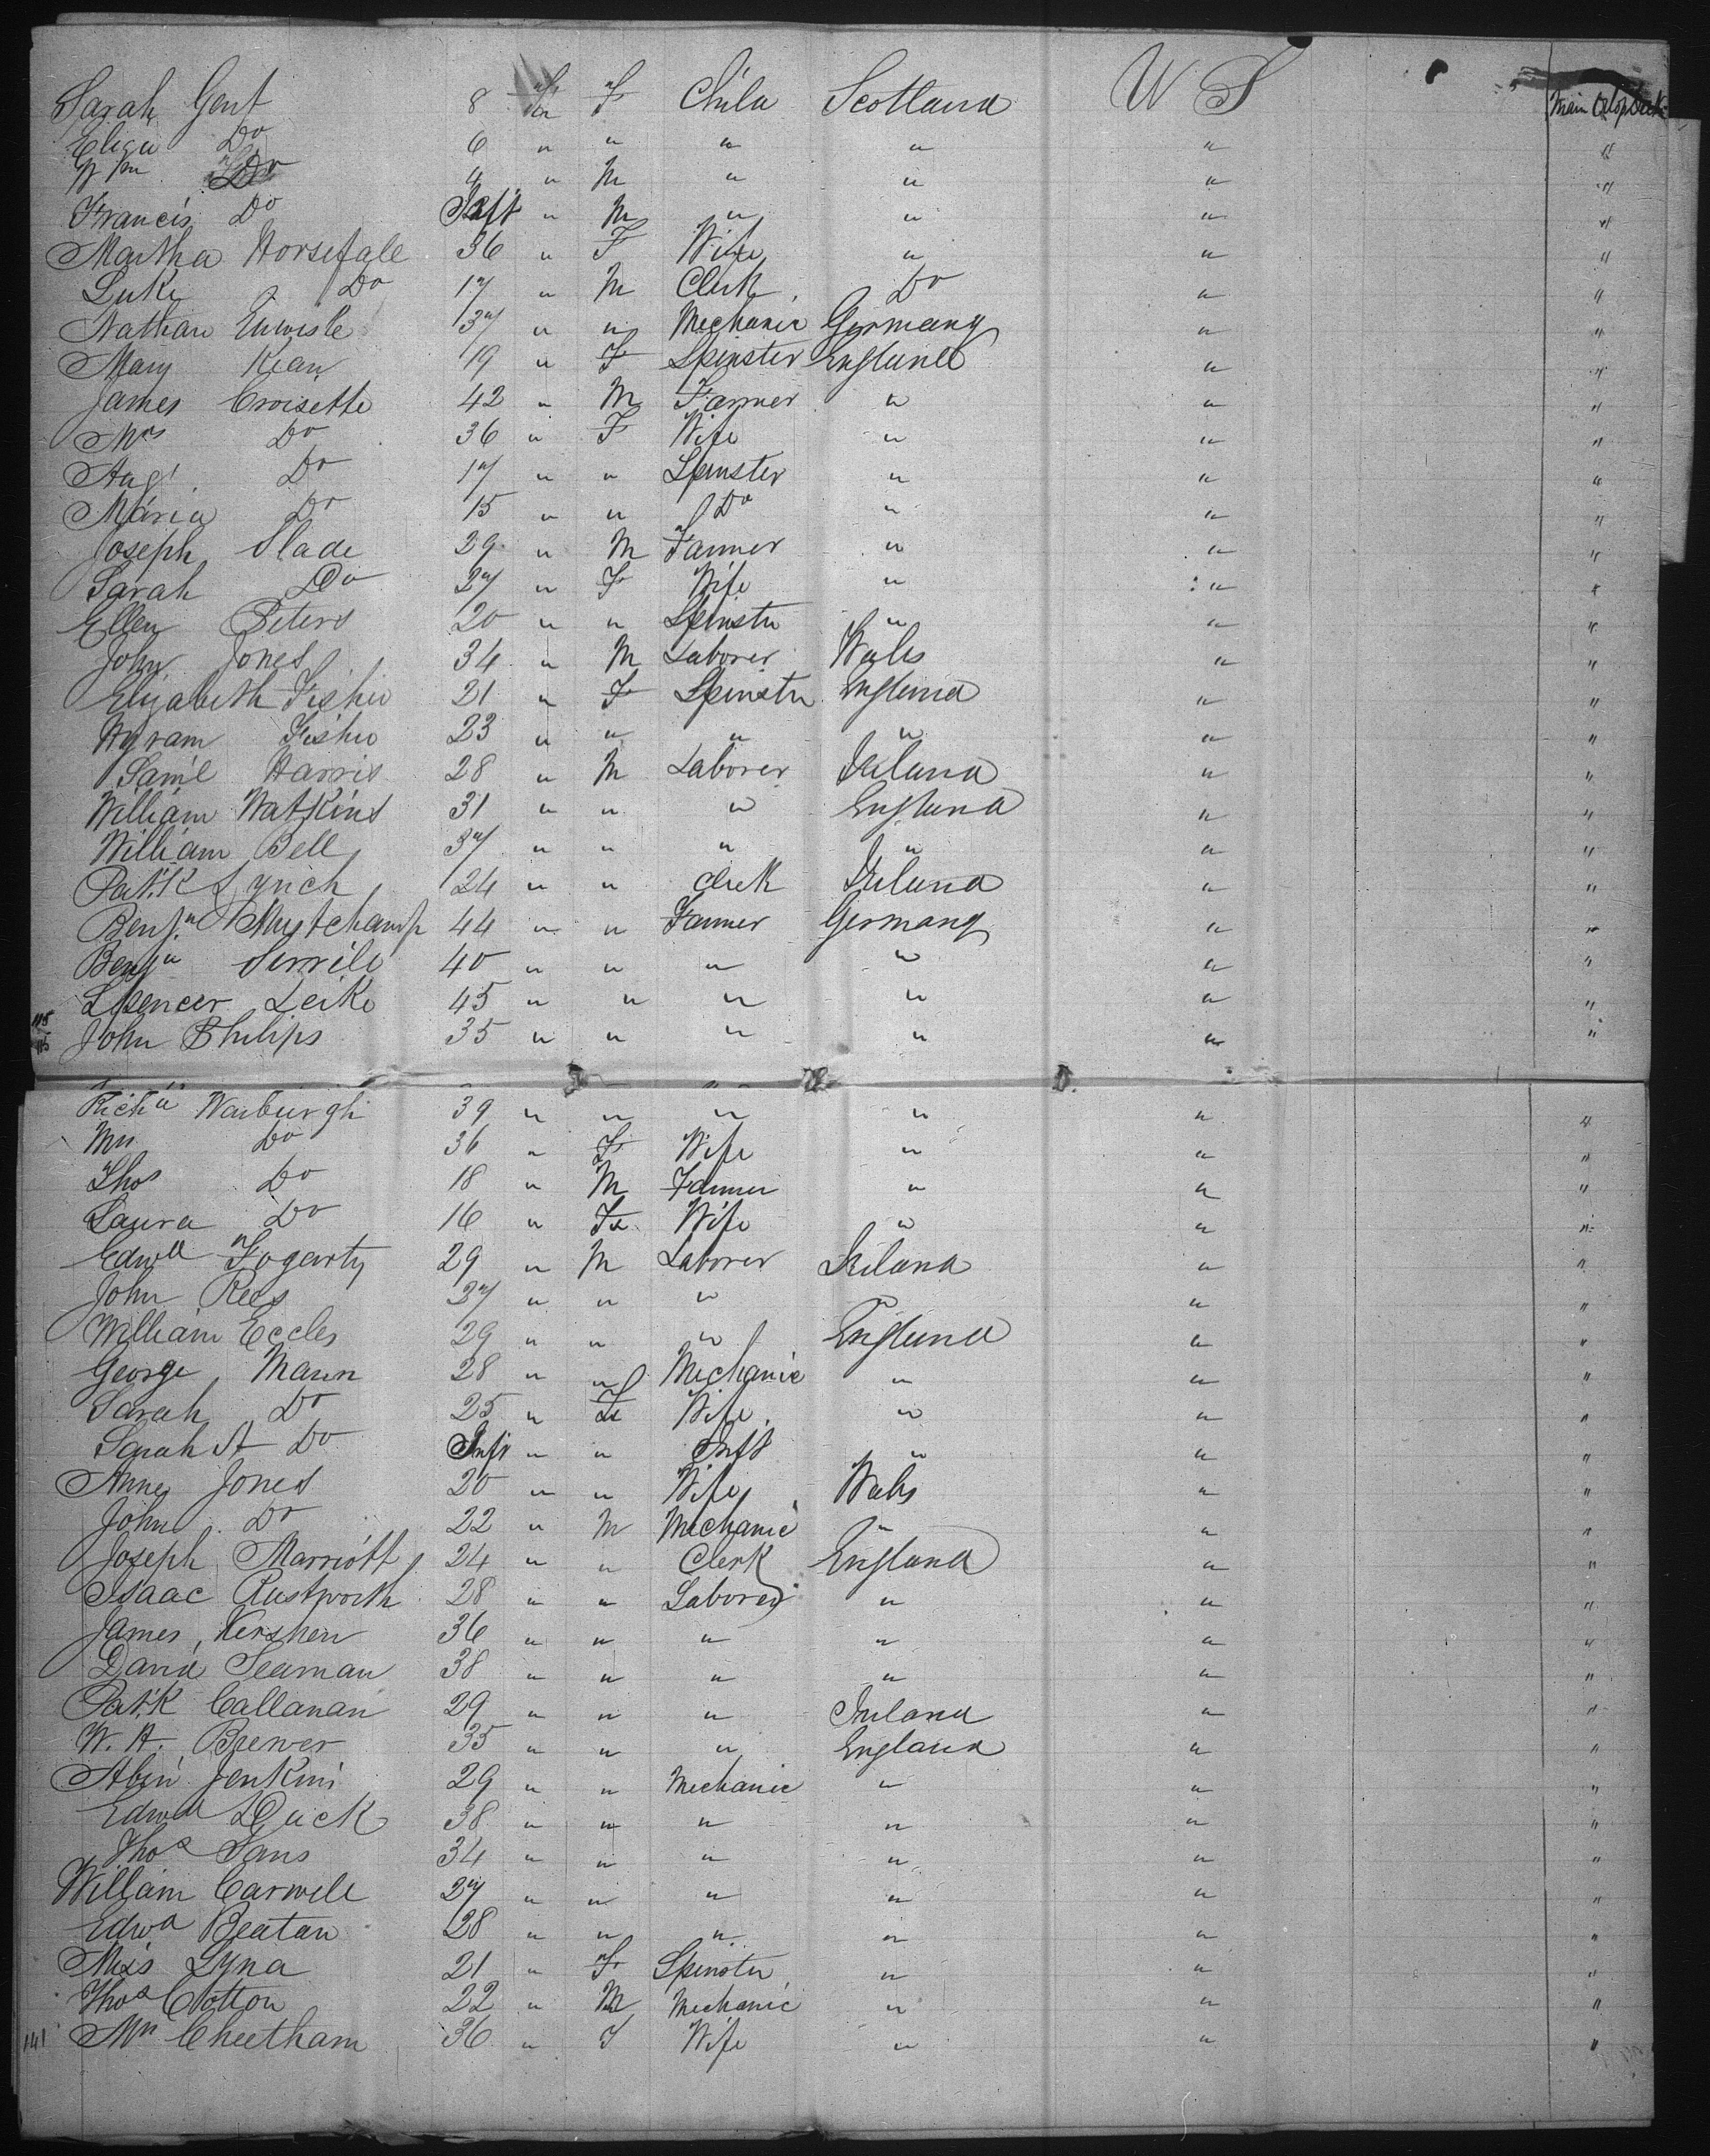 Sarah Gent 8 " F Child Scotland U S Main &amp; Top Deck
Eliza Do 6 " " " " " "
Wm Do 4 " M " " " "
Francis Do Inft " M " " " "
Martha Horsefale 36 " F Wife " " "
Luke Do 17 " M Clerk Do " "
Nathan Entwisle 37 " " Mechanic Germany " "
Mary Kean 19 " F Spinster England " "
James Croisette 42 " M Farmer " " "
Mrs Do 36 " F Wife " " "
Aug. Do 17 " " Spinster " " "
Maria Do 15 " " Do " " "
Joseph Slade 29 " M Farmer " " "
Sarah Do 27 " F Wife " " "
Ellen Peters 20 " " Spinster " " "
John Jones 34 " M Laborer Wales " "
Elizabeth Fisher 21 " F Spinster England " "
Hyram Fisher 23 " " " " " "
Saml Harris 28 " M Laborer Ireland " "
William Watkins 31 " " " England " "
William Bell 37 " " " " " "
Patk Lynch 24 " " Clerk Ireland " "
Benjn Mustchamp 44 " " Farmer Germany " "
Benjn Serrile 40 " " " " " "
Spencer Leike 45 " " " " " "
115 John Philips 35 " " " " " "
Richd Warburgh 39 " " " " " "
Mrs Do 36 " F Wife " " "
Thos Do 18 " M Farmer " " "
Laura Do 16 " Fe Wife " " "
Edwd Fogarty 29 " M Laborer Ireland " "
John Rees 27 " " " " " "
William Eccles 29 " " " England " "
George Mann 28 " " Mechanic " " "
Sarah Do 25 " Fe Wife " " "
Sarah A Do Inft " " Inft " " "
Anne Jones 20 " " Wife Wales " "
John Do 22 " M Mechanic " " "
Joseph Marriott 24 " " Clerk England " "
Isaac Rustworth 28 " " Laborer " " "
James Kershew 36 " " " " " "
David Seaman 38 " " " " " "
Patk Callanan 29 " " " Ireland " "
W. H. Brewer 35 " " " England " "
Abin Jenkins 29 " " Mechanic " " "
Edwd Duck 38 " " " " " "
Thos Sans 34 " " " " " "
William Carwell 27 " " " " " "
Edwd Beatan 28 " " " " " "
Miss Lyna 21 " F Spinster " " "
Thos Cotton 22 " M Mechanic " " "
141 Mrs Cheetham 36 " F Wife " " "